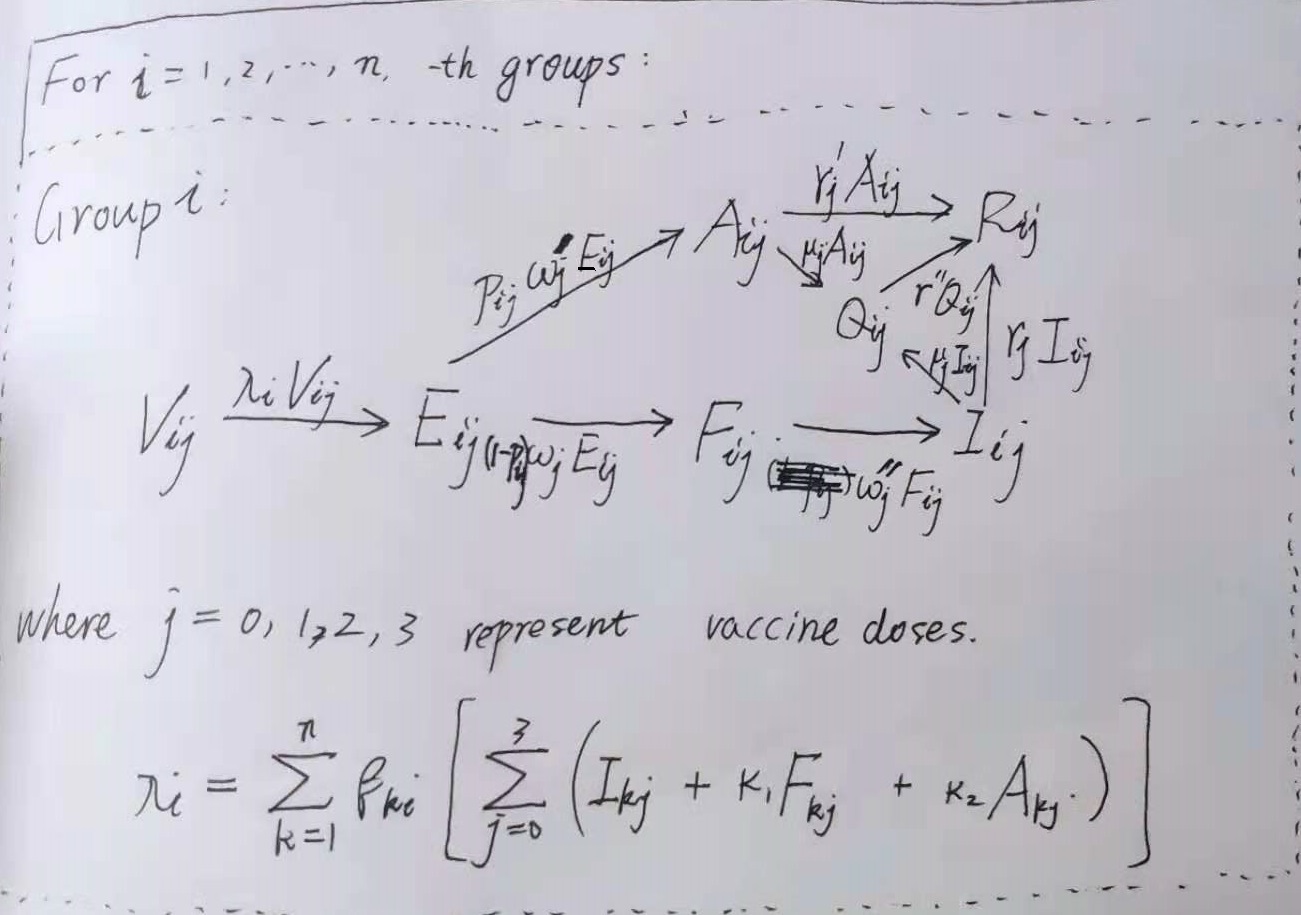 For i = 1, 2, ..., n, -th groups :
Group i :
r'_j A_ij
A_ij
R_ij
p_ij ω_j' E_ij
μ_j A_ij
Q_ij
r'' Q_ij
μ_j I_ij
r_j I_ij
V_ij
λ_i V_ij
E_ij
(1-p_ij) ω_j E_ij
F_ij
ω_j'' F_ij
I_ij
where j = 0, 1, 2, 3 represent vaccine doses.
λ_i = Σ_{k=1}^{n} β_ki [ Σ_{j=0}^{3} ( I_kj + κ_1 F_kj + κ_2 A_kj ) ]